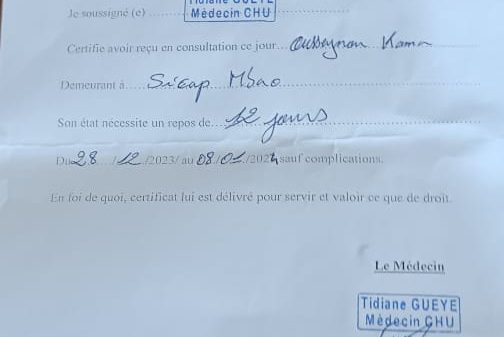 Tidiane GUEYE
Je soussigné (e) ............ Mèdecin CHU ............
Certifie avoir reçu en consultation ce jour... Ousseynou Kama
Demeurant à..... Sicap Mbao
Son état nécessite un repos de... 12 jours
Du 28/12/2023/ au 08/01/2024 sauf complications.
En foi de quoi, certificat lui est délivré pour servir et valoir ce que de droit.
Le Médecin
Tidiane GUEYE
Mèdecin CHU